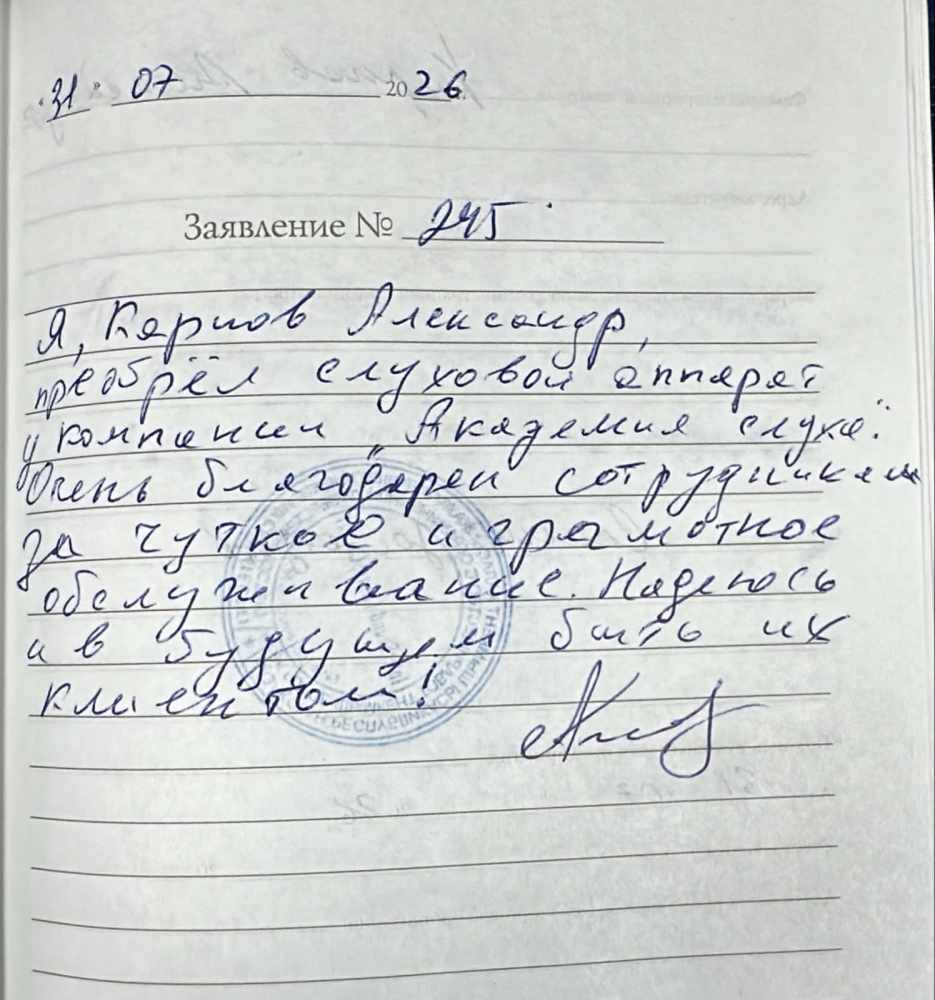 31 07 2026
Заявление № 245
Я, Карпов Александр,
преобрёл слуховой аппарат
у компании „Академия слуха".
Очень благодарен сотрудникам
за чуткое и грамотное
обслуживание. Надеюсь
и в будущем быть их
клиентом!